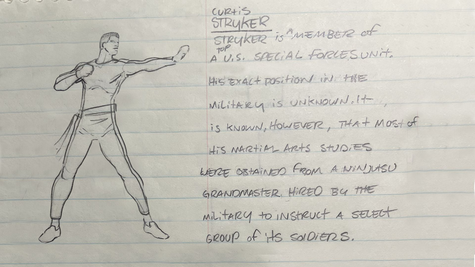 CURTIS
STRYKER
STRYKER is A MEMBER of
A TOP U.S. SPECIAL FORCES UNIT.
HIS EXACT POSITION IN THE
MILITARY IS UNKNOWN. It
is KNOWN, HOWEVER, THAT MOST of
HIS MARTIAL ARTS STUDIES
WERE OBTAINED FROM A NINJUTSU
GRANDMASTER HIRED BY THE
MILITARY TO INSTRUCT A SELECT
GROUP OF its SOLDIERS.